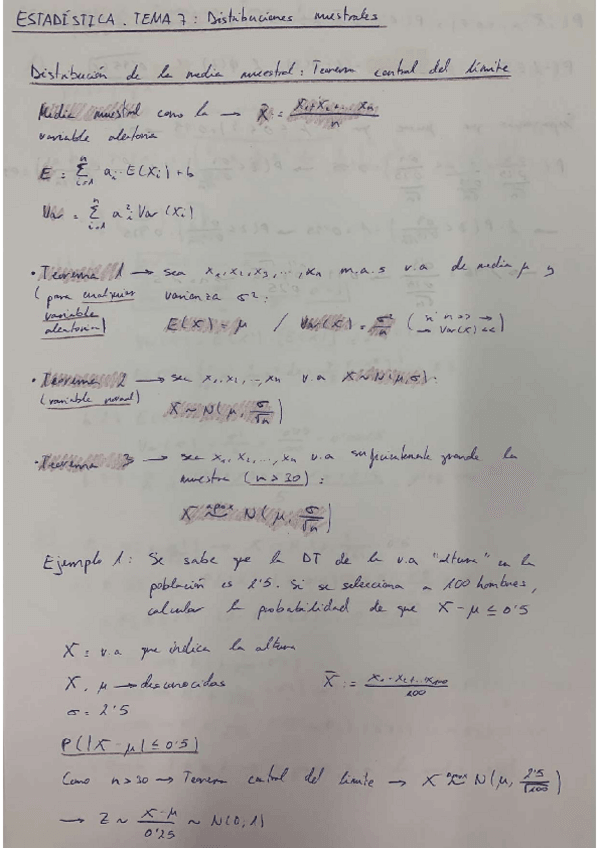 ESTADÍSTICA. TEMA 7: Distribuciones muestrales
Distribución de la media muestral: Teorema central del límite
Media muestral como la → X̄ := (x₁+x₂+...xₙ)/n
variable aleatoria
E = Σⁿᵢ₌₁ aᵢ · E(Xᵢ) + b
Var = Σⁿᵢ₌₁ a²ᵢ Var(Xᵢ)
· Teorema 1 → sea x₁, x₂, x₃, ..., xₙ m.a.s v.a de media μ y
(para cualquier varianza σ²:
variable
aleatoria) E(X̄) = μ / Var(X̄) = σ²/n (si n>> → → Var(X̄) <<)
· Teorema 2 → sea x₁, x₂, ..., xₙ v.a X ~ N(μ, σ):
(variable normal)
X̄ ~ N(μ, σ/√n)
· Teorema 3 → sea x₁, x₂, ..., xₙ v.a suficientemente grande la
muestra (n > 30):
X̄ ~aprox N(μ, σ/√n)
Ejemplo 1: Se sabe que la DT de la v.a "altura" en la
población es 2'5. Si se selecciona a 100 hombres,
calcular la probabilidad de que X̄ - μ ≤ 0'5
X = v.a que indica la altura
X, μ → desconocidas X̄ := (x₁+x₂+...x₁₀₀)/100
σ = 2'5
P(|X̄ - μ| ≤ 0'5)
Como n>30 → Teorema central del límite → X̄ ~aprox N(μ, 2'5/√100)
→ Z ~ (X̄-μ)/0'25 ~ N(0,1)